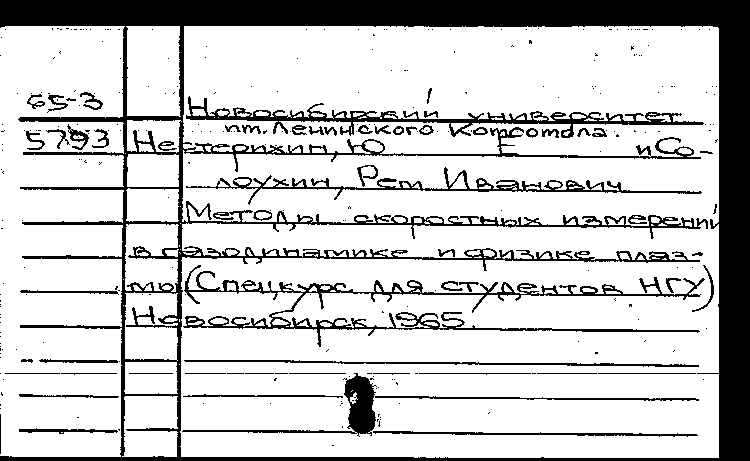 65-3
Новосибирский университет
им. Ленинского Комсомола.
5793 Нестерихин, Ю Е и Со-
лоухин, Рем Иванович
Методы скоростных измерений
в газодинамике и физике плаз-
мы (Спецкурс для студентов НГУ)
Новосибирск, 1965.